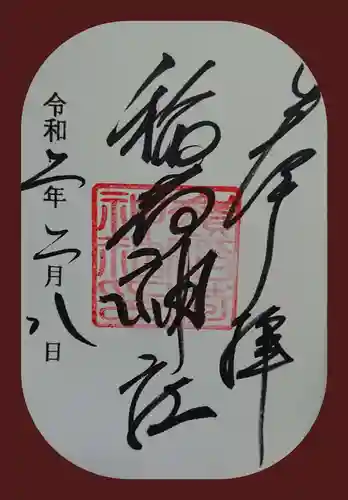 奉拝
稲荷神社
令和二年二月八日